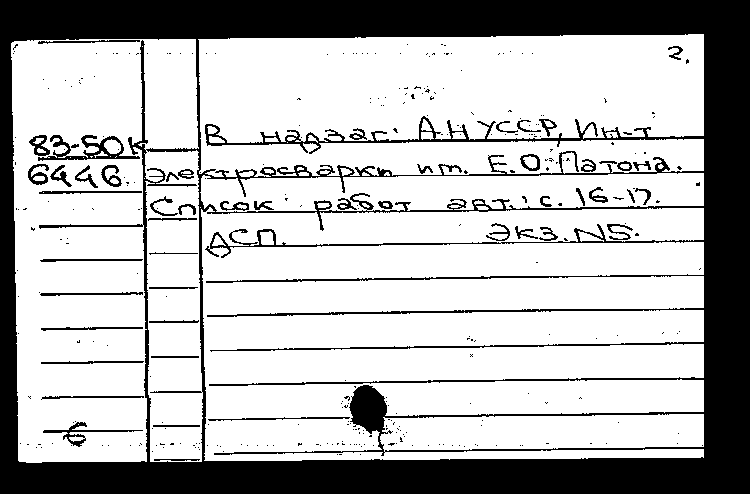 2.
83-50к В надзаг: АН УССР, Ин-т
6446 электросварки им. Е.О.Патона.
Список работ авт.: с. 16-17.
ДСП. Экз.N5.
6